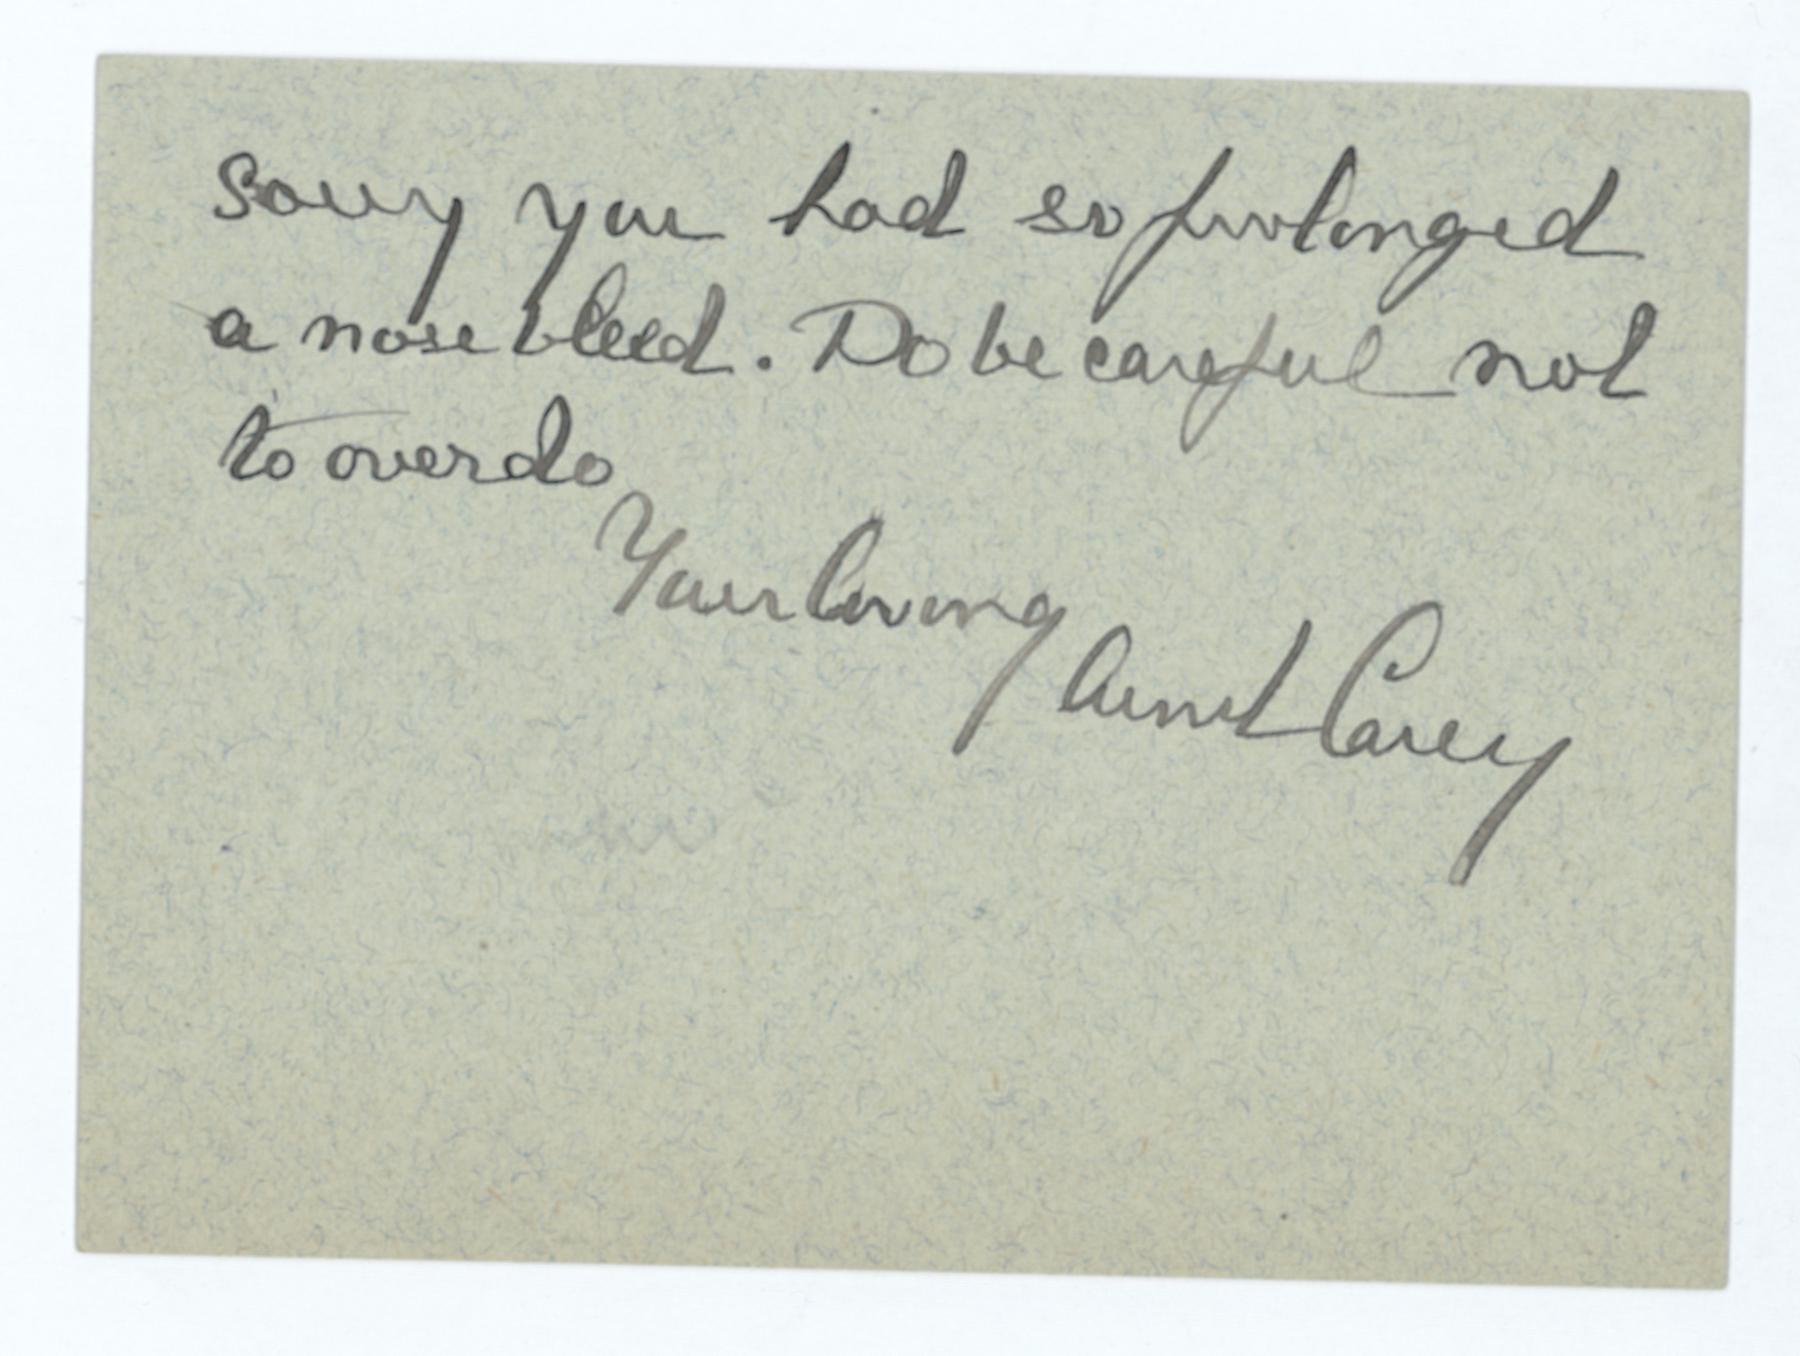 Sorry you had so prolonged
a nose bleed. Do be careful not
to overdo
Your loving
Aunt Carey